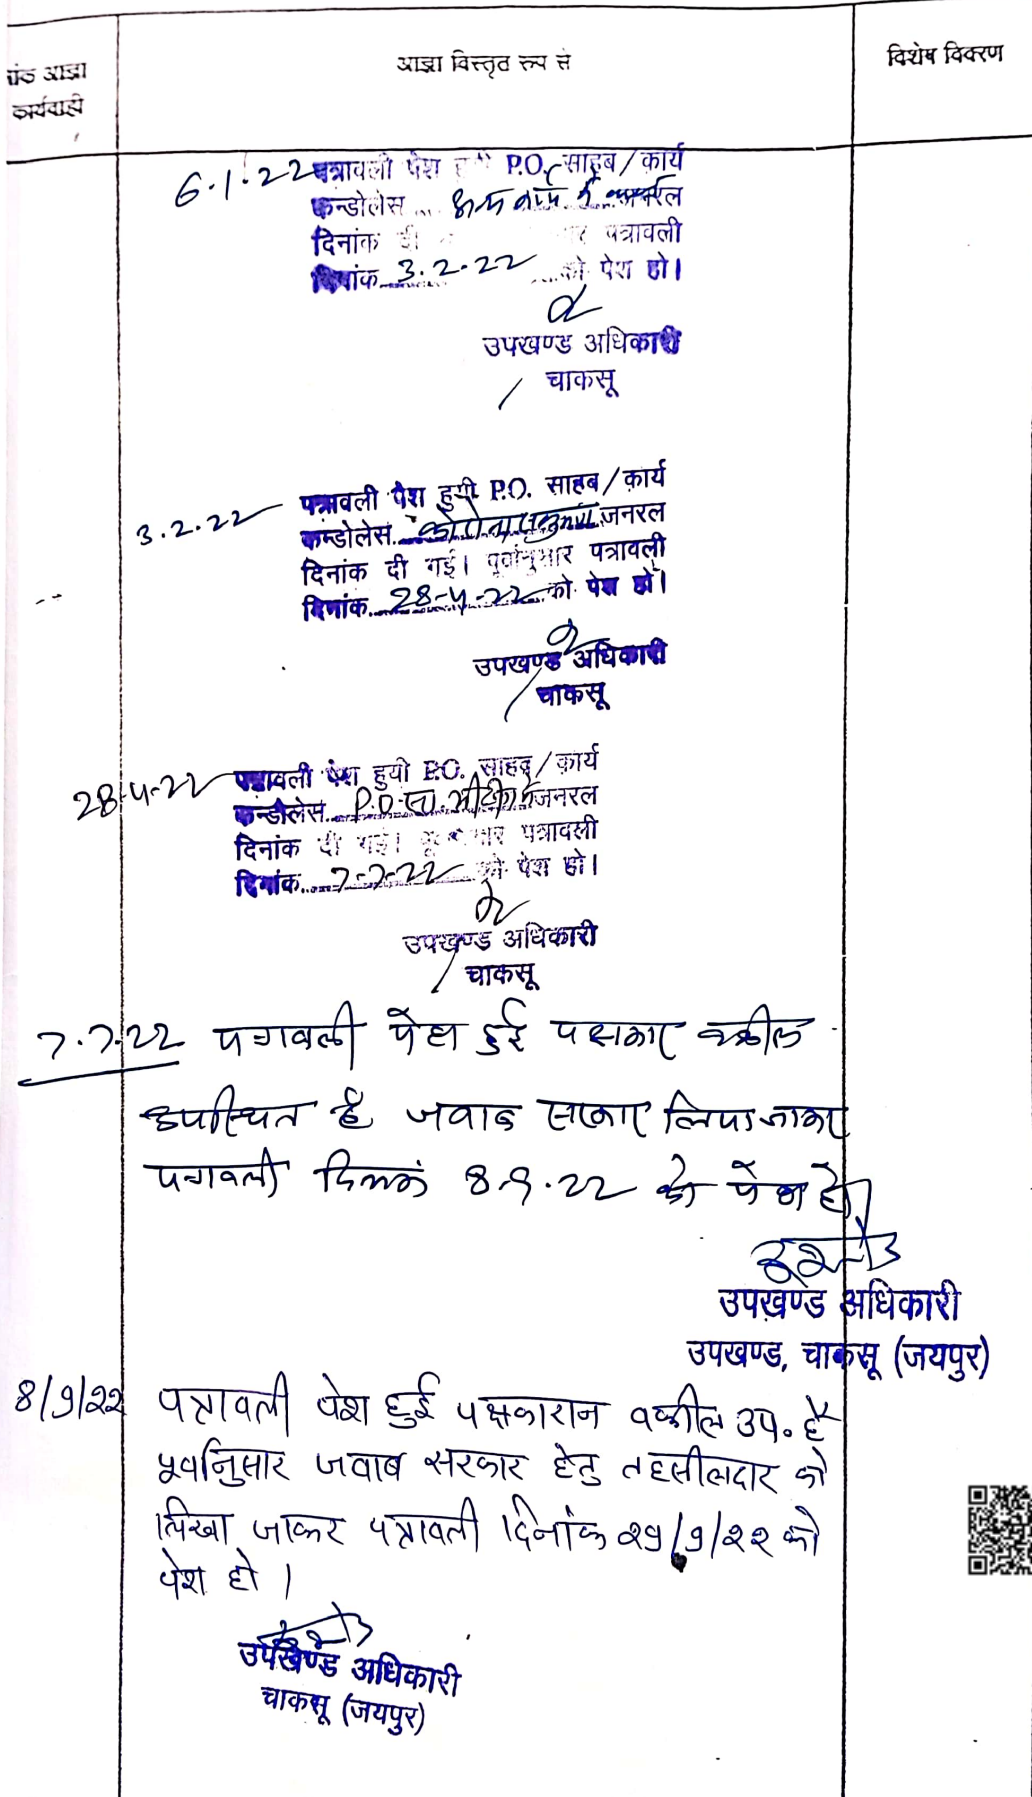 आज्ञा विस्तृत रूप से
विशेष विवरण
आज्ञा
कार्यवाही
6.1.22 पत्रावली पेश P.O. साहब / कार्य
कन्डोलेस
दिनांक दी पत्रावली
दिनांक 3.2.22 को पेश हो।
उपखण्ड अधिकारी
चाकसू
3.2.22 पत्रावली पेश हुयी P.O. साहब / कार्य
कन्डोलेस कोरोना जनरल
दिनांक दी गई। पूर्वानुसार पत्रावली
दिनांक 28-4-22 को पेश हो।
उपखण्ड अधिकारी
चाकसू
28-4-22 पत्रावली पेश हुयी P.O. साहब / कार्य
कन्डोलेस P.O. सा. मीटिंग जनरल
दिनांक दी गई। पत्रावली
दिनांक 7-7-22 को पेश हो।
उपखण्ड अधिकारी
चाकसू
7.7.22 पत्रावली पेश हुई पक्षकार वकील
उपस्थित है जवाब सरकार लिया जाकर
पत्रावली दिनांक 8-9.22 को पेश हो
उपखण्ड अधिकारी
उपखण्ड, चाकसू (जयपुर)
8/9/22 पत्रावली पेश हुई पक्षकारान वकील उप. है
पूर्वानुसार जवाब सरकार हेतु तहसीलदार को
लिखा जाकर पत्रावली दिनांक 29/9/22 को
पेश हो।
उपखण्ड अधिकारी
चाकसू (जयपुर)